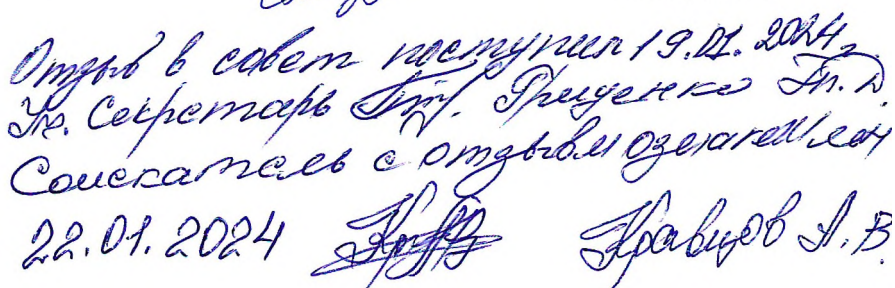 Отзыв в совет поступил 19.01.2024г.
Уч. Секретарь Гриценко Т.Д.
Соискатель с отзывом ознакомлен
22.01.2024 Кравцов А.В.